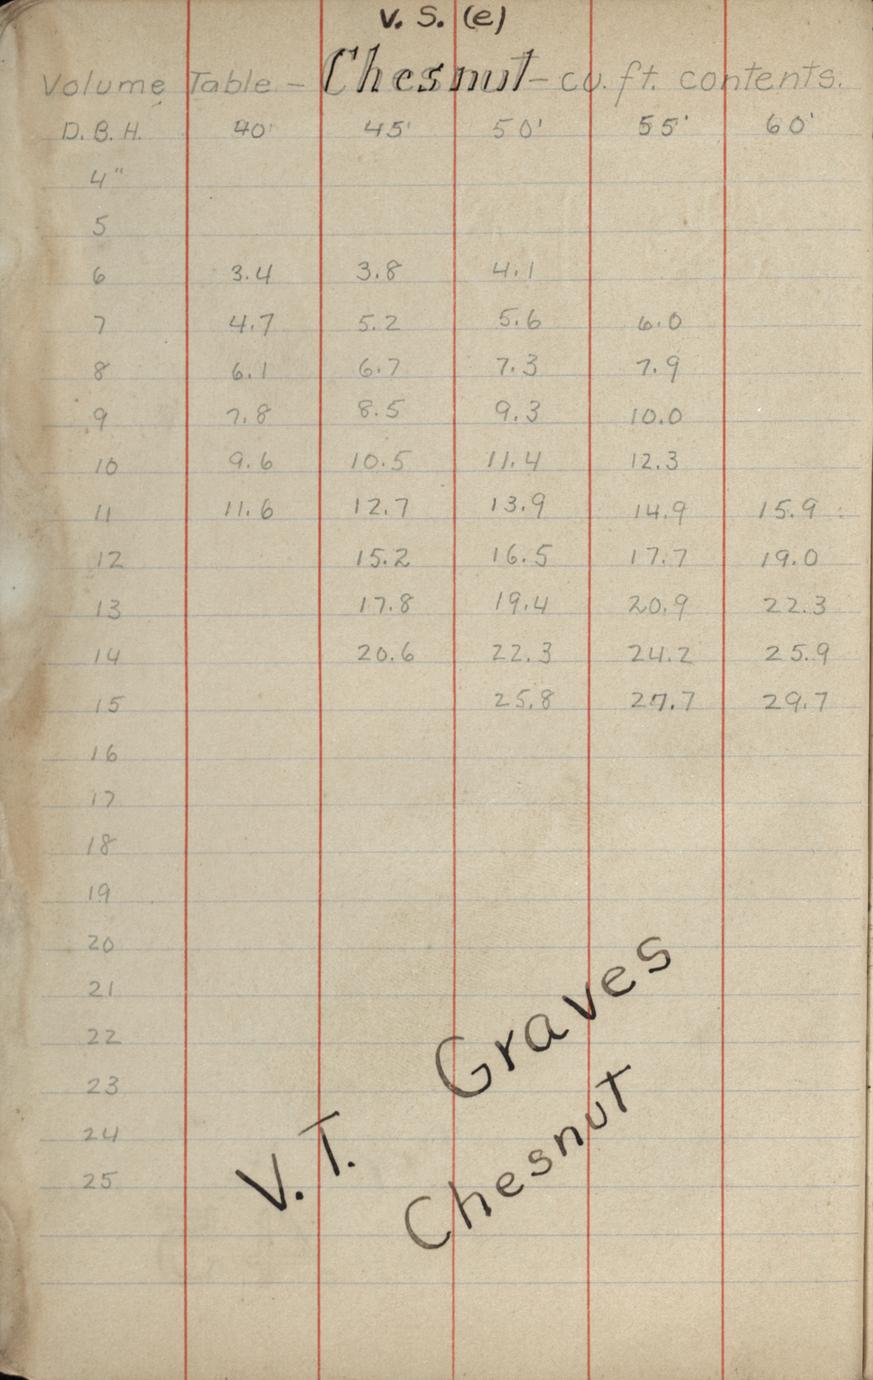 V. S. (e)
Volume Table - Chesnut - cu. ft. contents.
D. B. H. 40' 45' 50' 55' 60'
4"
5
6 3.4 3.8 4.1
7 4.7 5.2 5.6 6.0
8 6.1 6.7 7.3 7.9
9 7.8 8.5 9.3 10.0
10 9.6 10.5 11.4 12.3
11 11.6 12.7 13.9 14.9 15.9
12 15.2 16.5 17.7 19.0
13 17.8 19.4 20.9 22.3
14 20.6 22.3 24.2 25.9
15 25.8 27.7 29.7
16
17
18
19
20
21
22
23
24
25
V. T. Graves
Chesnut